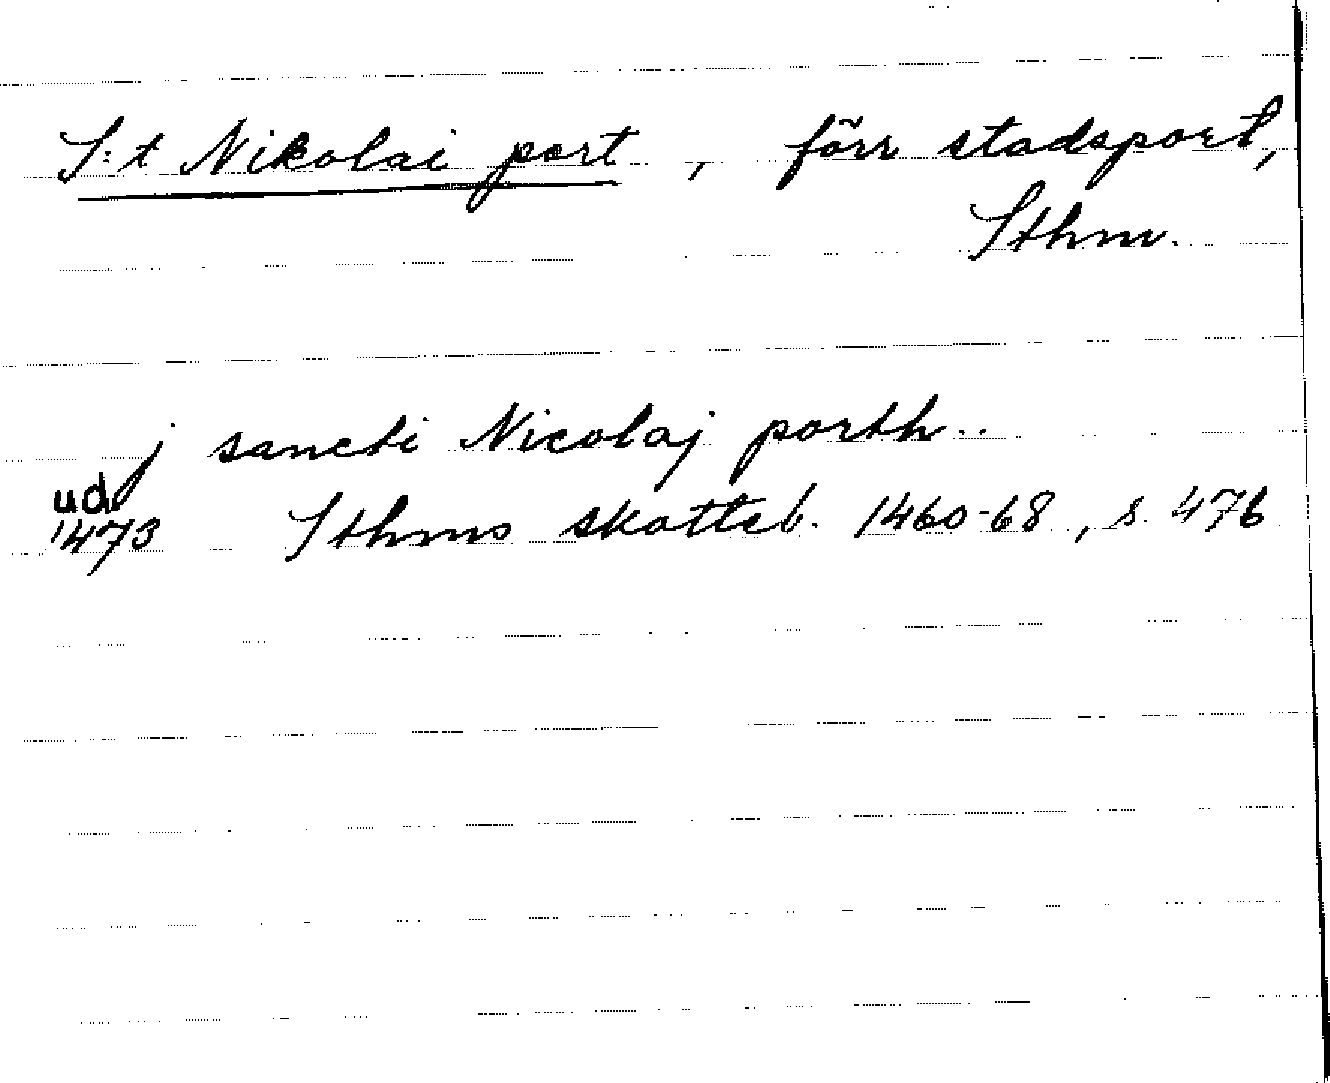 S:t Nikolai port, förr stadsport,
Sthm.
j sancti Nicolaj porth..
ud
1473 Sthms skotteb. 1460-68, s. 476